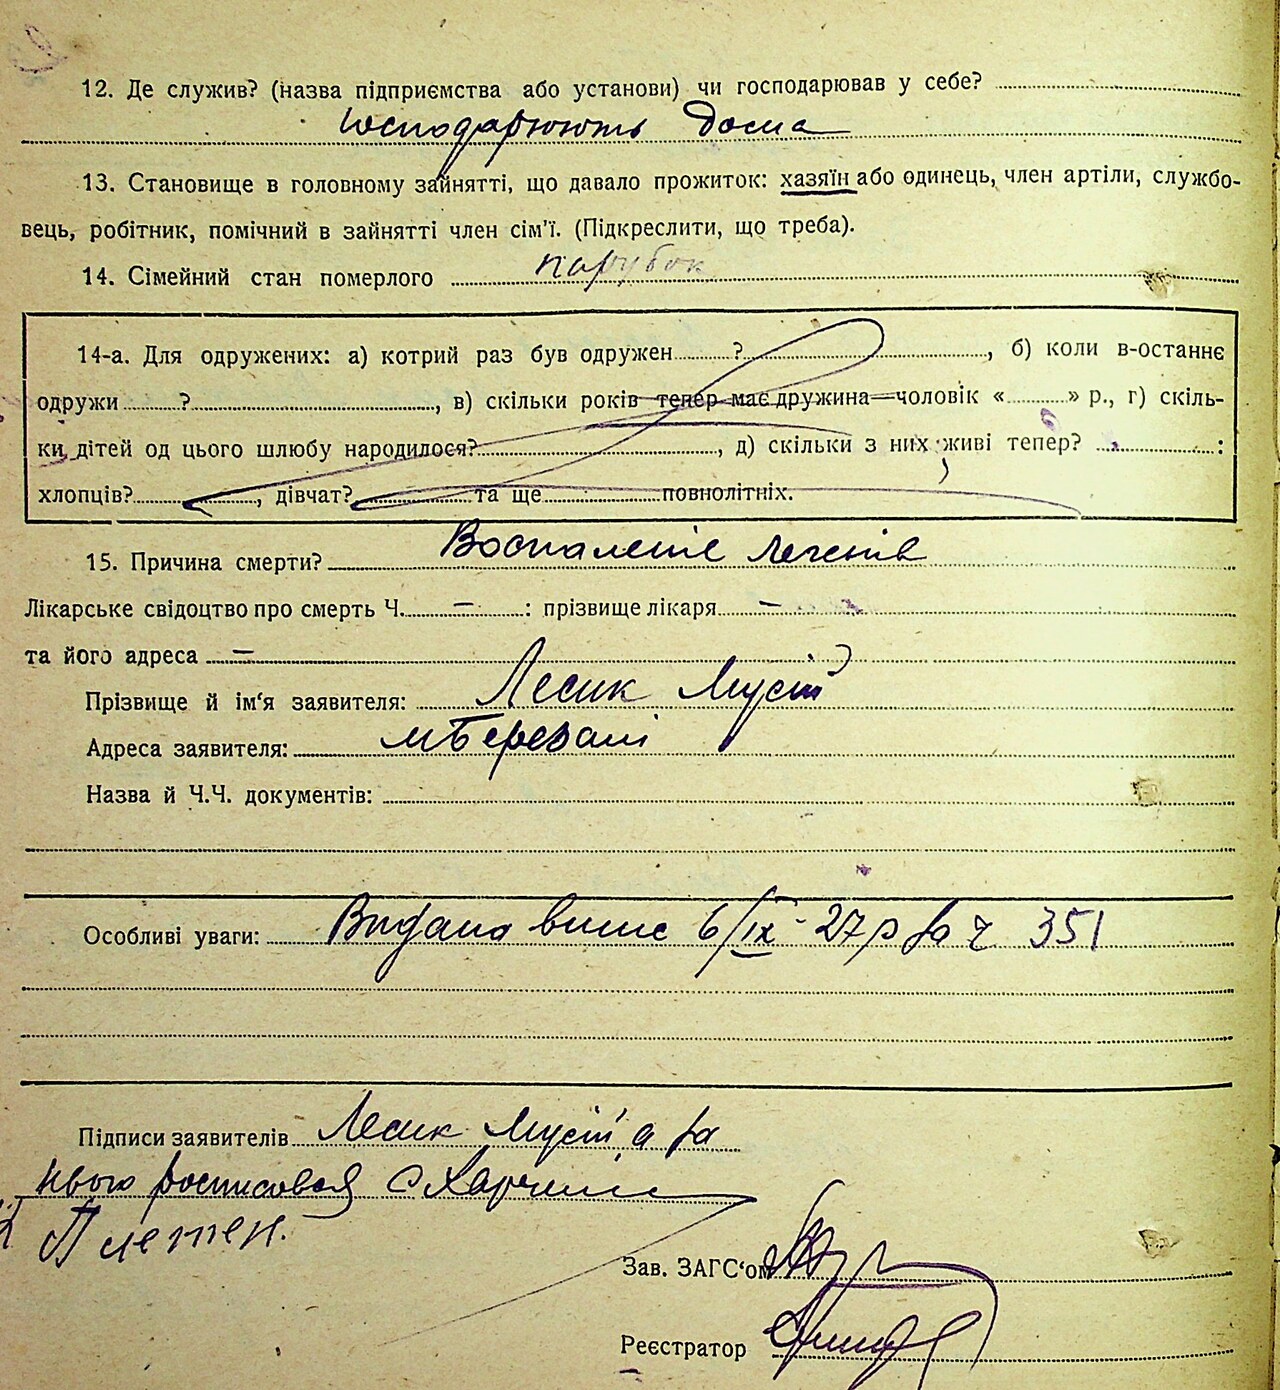 12. Де служив? (назва підприємства або установи) чи господарював у себе?
Господарюють дома
13. Становище в головному зайнятті, що давало прожиток: хазяїн або одинець, член артіли, службо-
вець, робітник, помічний в зайнятті член сім'ї. (Підкреслити, що треба).
14. Сімейний стан померлого парубок
14-а. Для одружених: а) котрий раз був одружен ? , б) коли в-останнє
одружи ? , в) скільки років тепер має дружина—чоловік « » р., г) скіль-
ки дітей од цього шлюбу народилося? , д) скільки з них живі тепер? :
хлопців? , дівчат? та ще повнолітніх.
15. Причина смерти? Воспаленіе легенів
Лікарське свідоцтво про смерть Ч. — : прізвище лікаря —
та його адреса —
Прізвище й ім'я заявителя: Лесик Мусій
Адреса заявителя: м Березані
Назва й Ч.Ч. документів:
Особливі уваги: Видано випис 6/IX-27р за ч 351
Підписи заявителів Лесик Мусій а за
нього росписовся
Зав. ЗАГС'ом
Реєстратор